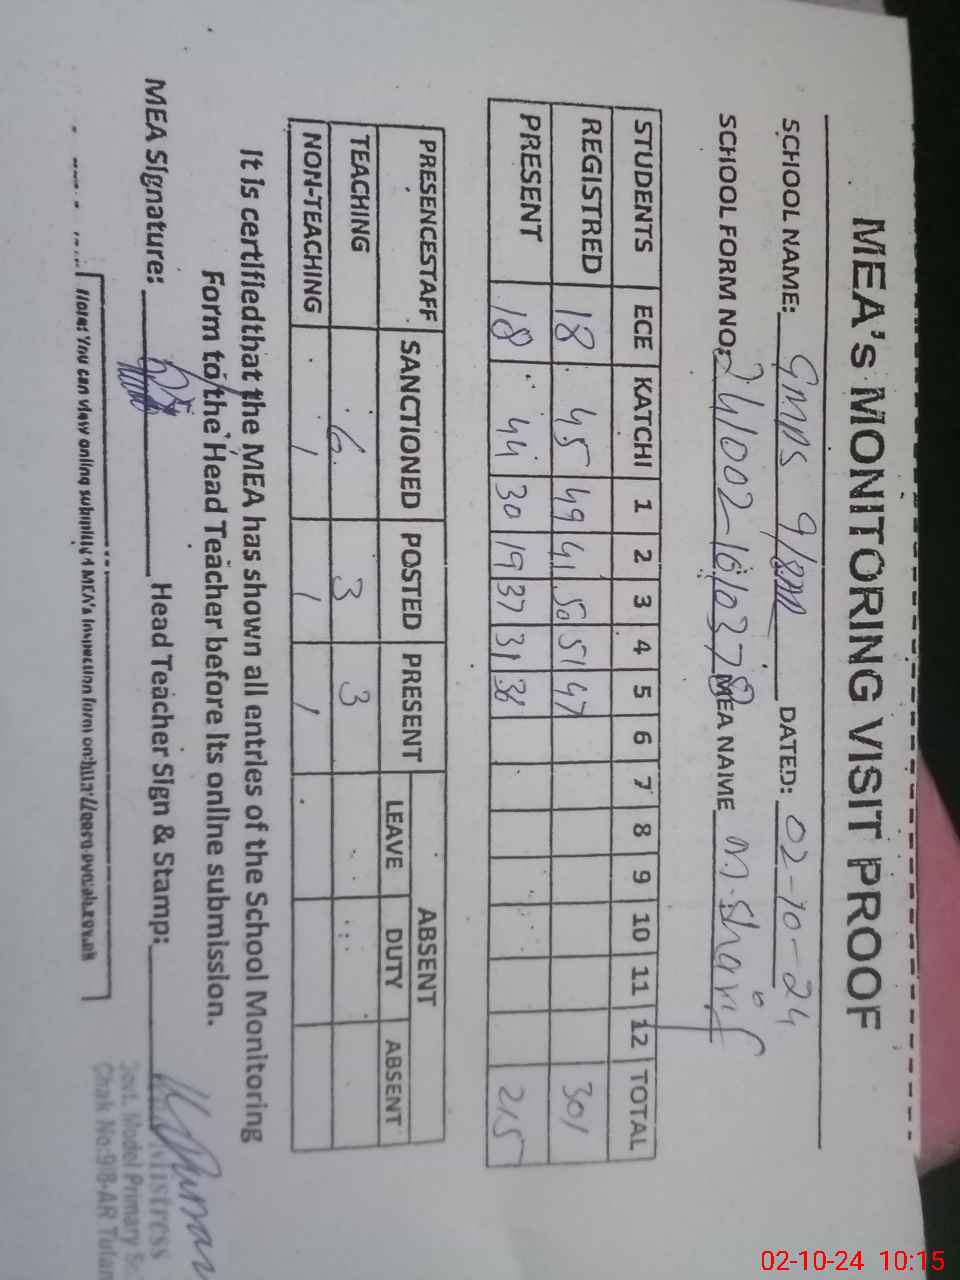 MEA's MONITORING VISIT PROOF
SCHOOL NAME: GMPS 9/8AR DATED: 02-10-24
SCHOOL FORM NO: 241002-1610378 MEA NAME M. Sharif
STUDENTS ECE KATCHI 1 2 3 4 5 6 7 8 9 10 11 12 TOTAL
REGISTRED 18 45 49 41 50 51 47 301
PRESENT 18 44 30 19 37 31 36 215
PRESENCESTAFF SANCTIONED POSTED PRESENT ABSENT
LEAVE DUTY ABSENT
TEACHING 6 3 3
NON-TEACHING 1 1 1
It is certifiedthat the MEA has shown all entries of the School Monitoring
Form to the Head Teacher before its online submission.
MEA Signature: Head Teacher Sign & Stamp:
Note: You can view online submitted MEA's Inspection form on:
Govt. Model Primary
Chak No:9/8-AR
02-10-24 10:15